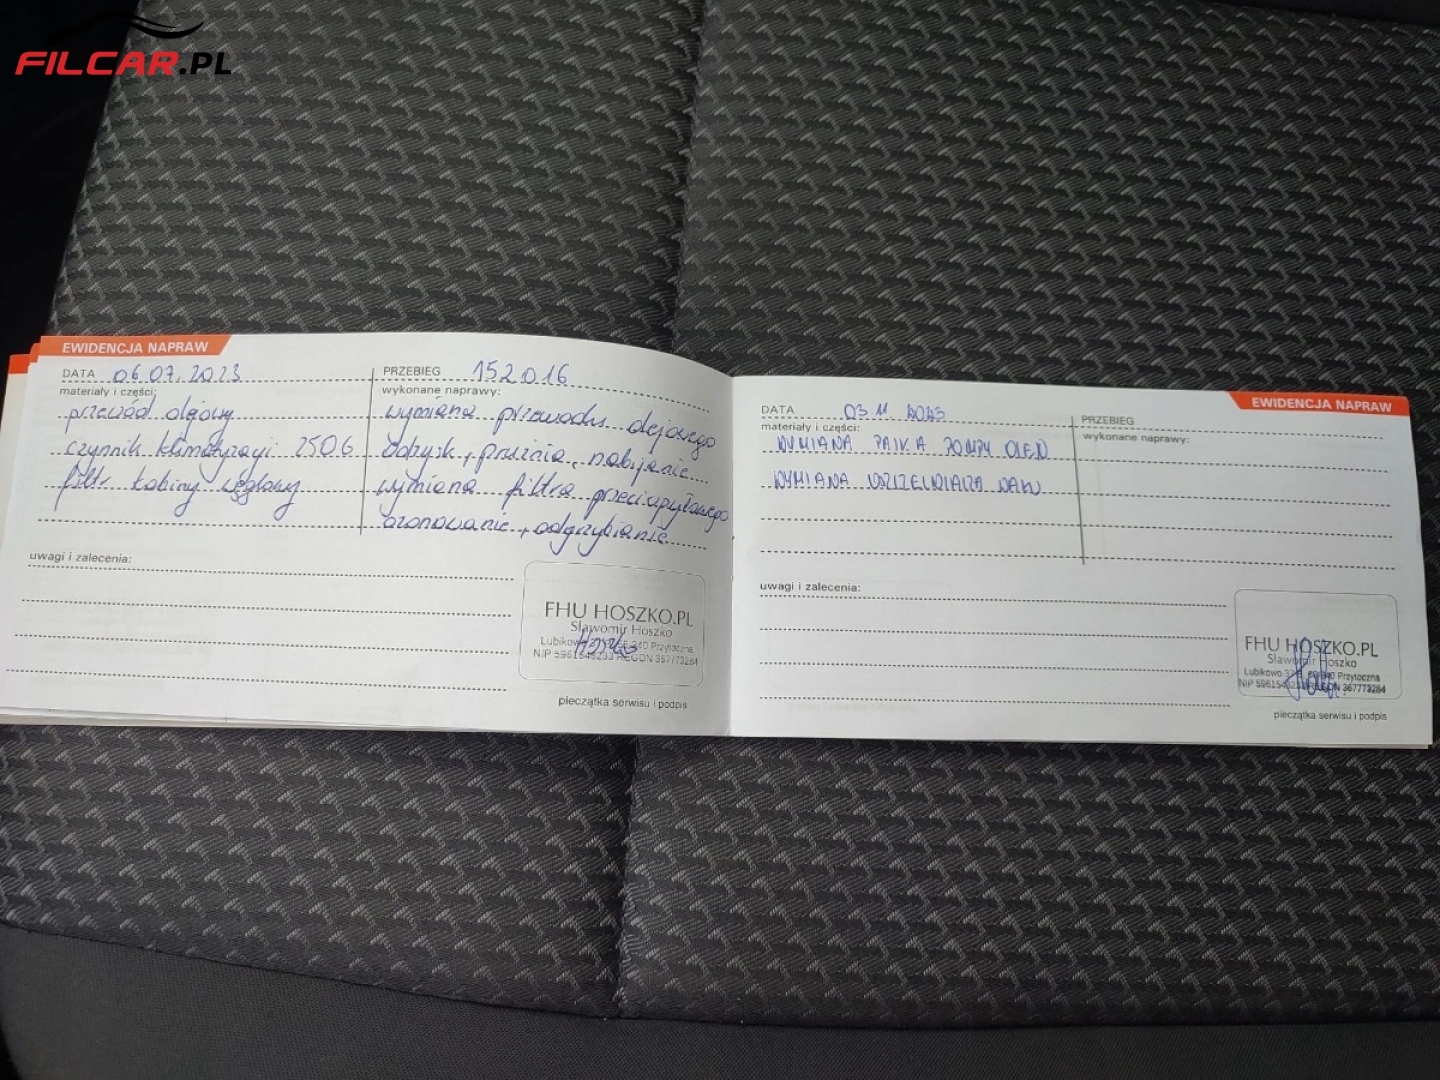 FILCAR.PL
EWIDENCJA NAPRAW
DATA 06.07.2023
PRZEBIEG 152016
materiały i części:
przewód olejowy
czynnik klimatyzacji 250G
filtr kabiny węglowy
wykonane naprawy:
wymiana przewodu olejowego
odzysk, próżnia, nabijanie
wymiana filtra przeciwpyłowego
ozonowanie, odgrzybianie
uwagi i zalecenia:
FHU HOSZKO.PL
Sławomir Hoszko
Lubikowo Przytoczna
NIP REGON 367773284
pieczątka serwisu i podpis
EWIDENCJA NAPRAW
DATA 03 11 2023
PRZEBIEG
materiały i części:
WYMIANA PASKA POMPY OLEJU
WYMIANA USZCZELNIACZA WAŁU
wykonane naprawy:
uwagi i zalecenia:
FHU HOSZKO.PL
Sławomir Hoszko
Lubikowo Przytoczna
NIP REGON 367773284
pieczątka serwisu i podpis